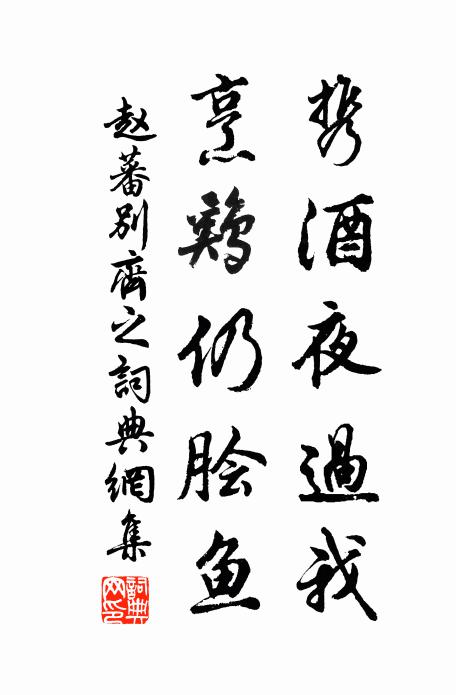 携酒夜過我
烹鷄仍脍鱼
赵蕃别齊之詞典網集
詞典网印